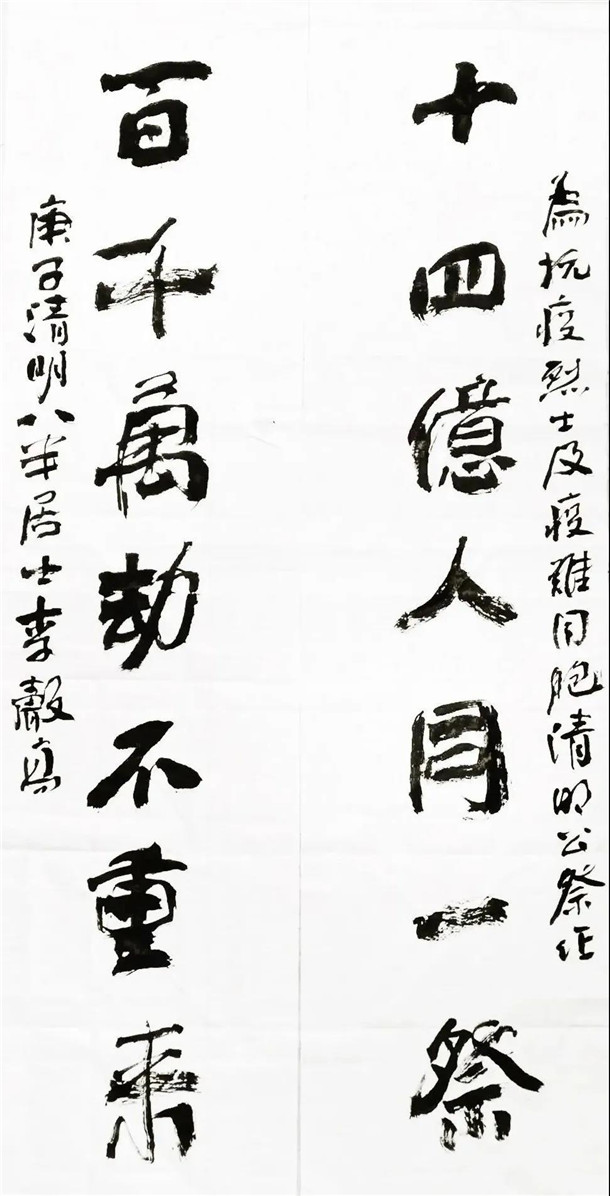 為抗疫烈士及疫難同胞清明公祭作
十四億人同一祭
百千萬劫不重来
庚子清明八半居士李